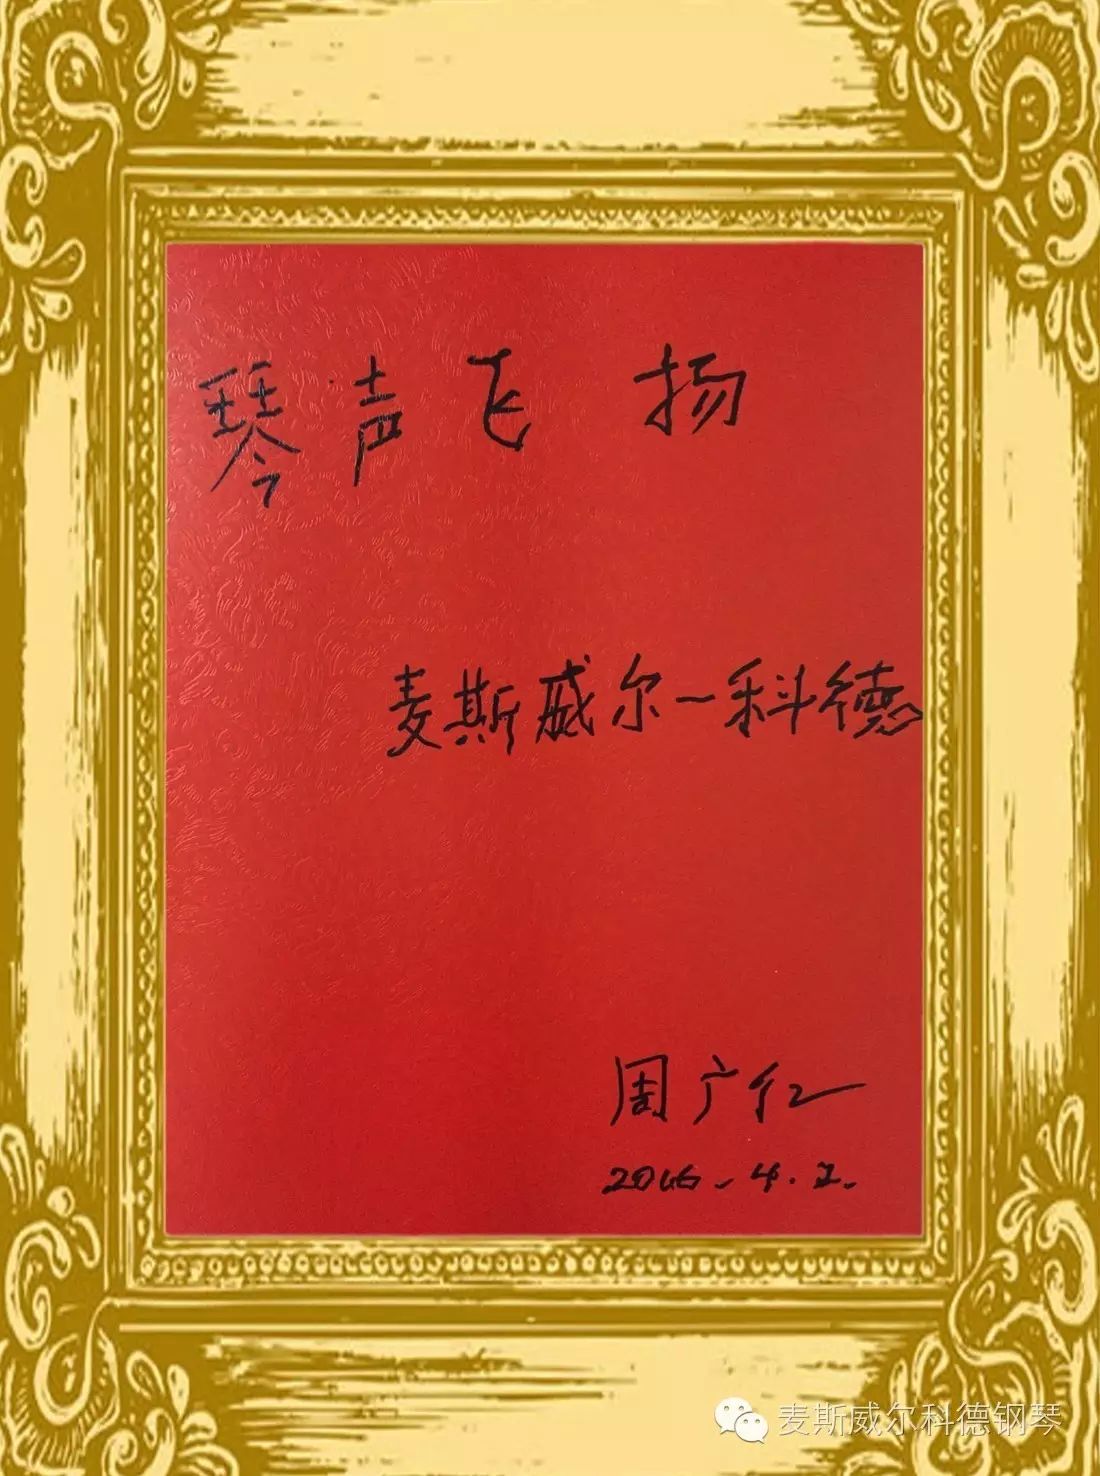 琴声飞扬
麦斯威尔一科德
周广仁
2016.4.2.
麦斯威尔科德钢琴